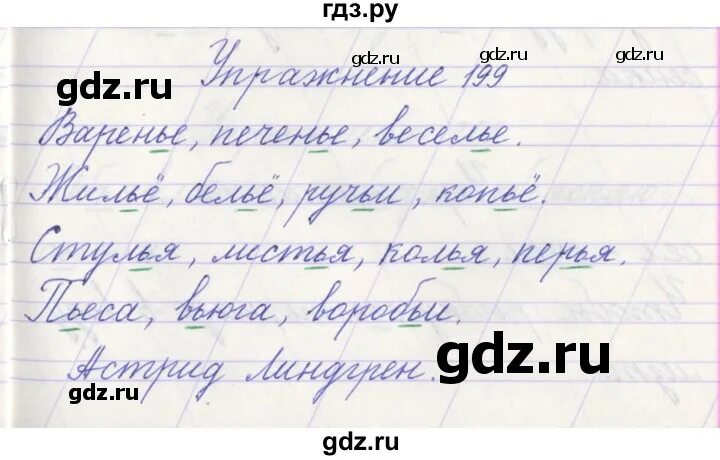 гдз.ру
gdz.ru gdz.ru gdz.ru
Упражнение 199
gdz.ru
Варенье, печенье, веселье.
Жильё, бельё, ручьи, копьё.
Стулья, листья, колья, перья.
Пьеса, вьюга, воробьи.
gdz.ru
Астрид Линдгрен.
gdz.ru
gdz.ru